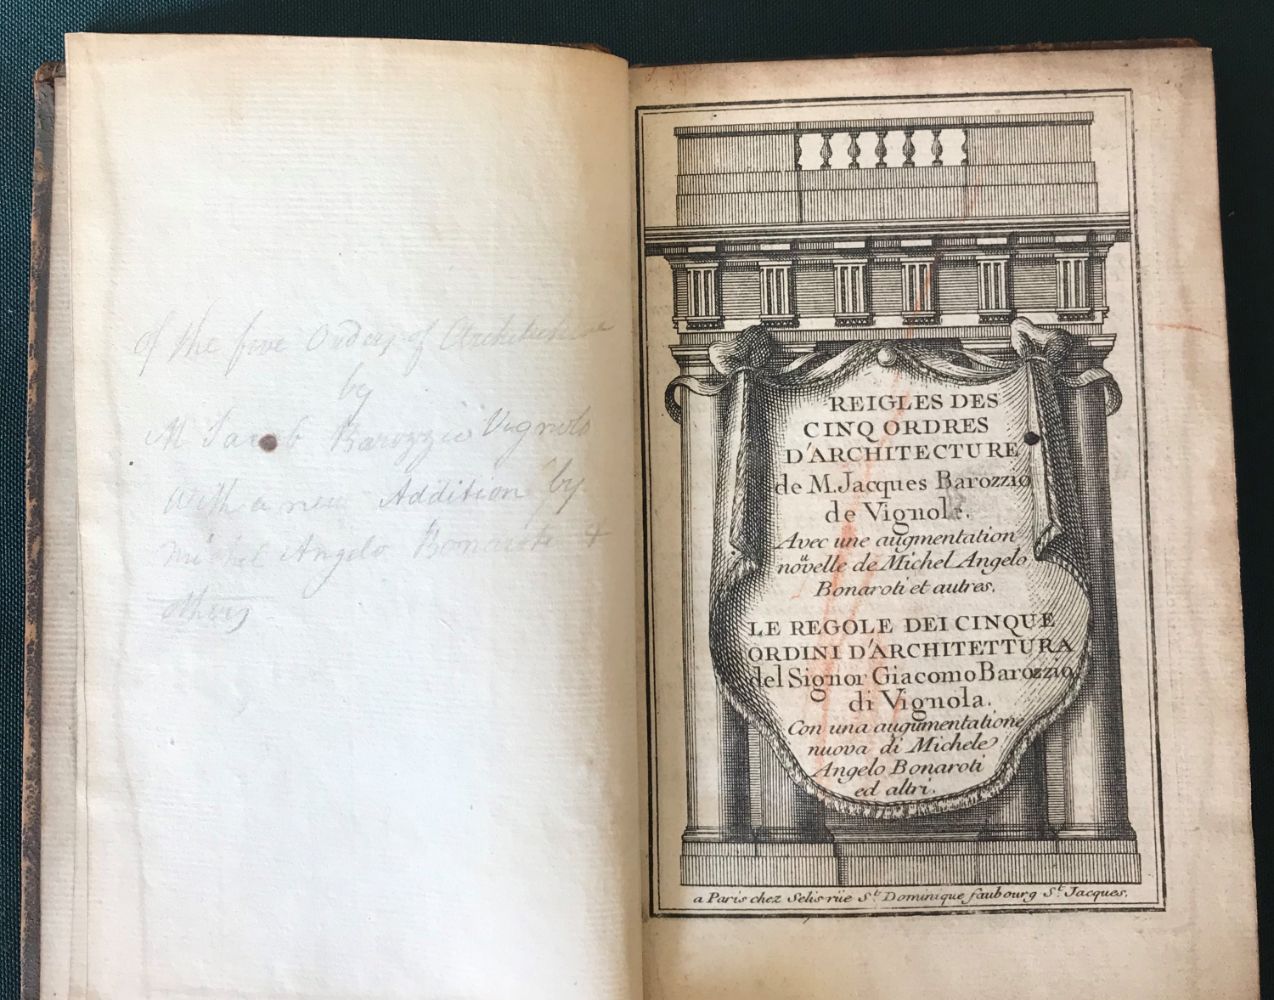 Of the five Orders of Architecture
by
M Jacob Barozzio Vignola
With a new Addition by
Michel Angelo Bonaroti &
others
REIGLES DES
CINQ ORDRES
D'ARCHITECTURE
de M. Jacques Barozzio
de Vignole.
Avec une augmentation
noüvelle de Michel Angelo
Bonaroti et autres.
LE REGOLE DEI CINQUE
ORDINI D'ARCHITETTURA
del Signor Giacomo Barozzio
di Vignola.
Con una augumentatione
nuova di Michele
Angelo Bonaroti
ed altri.
a Paris chez Selis rüe St. Dominique faubourg St. Jacques.